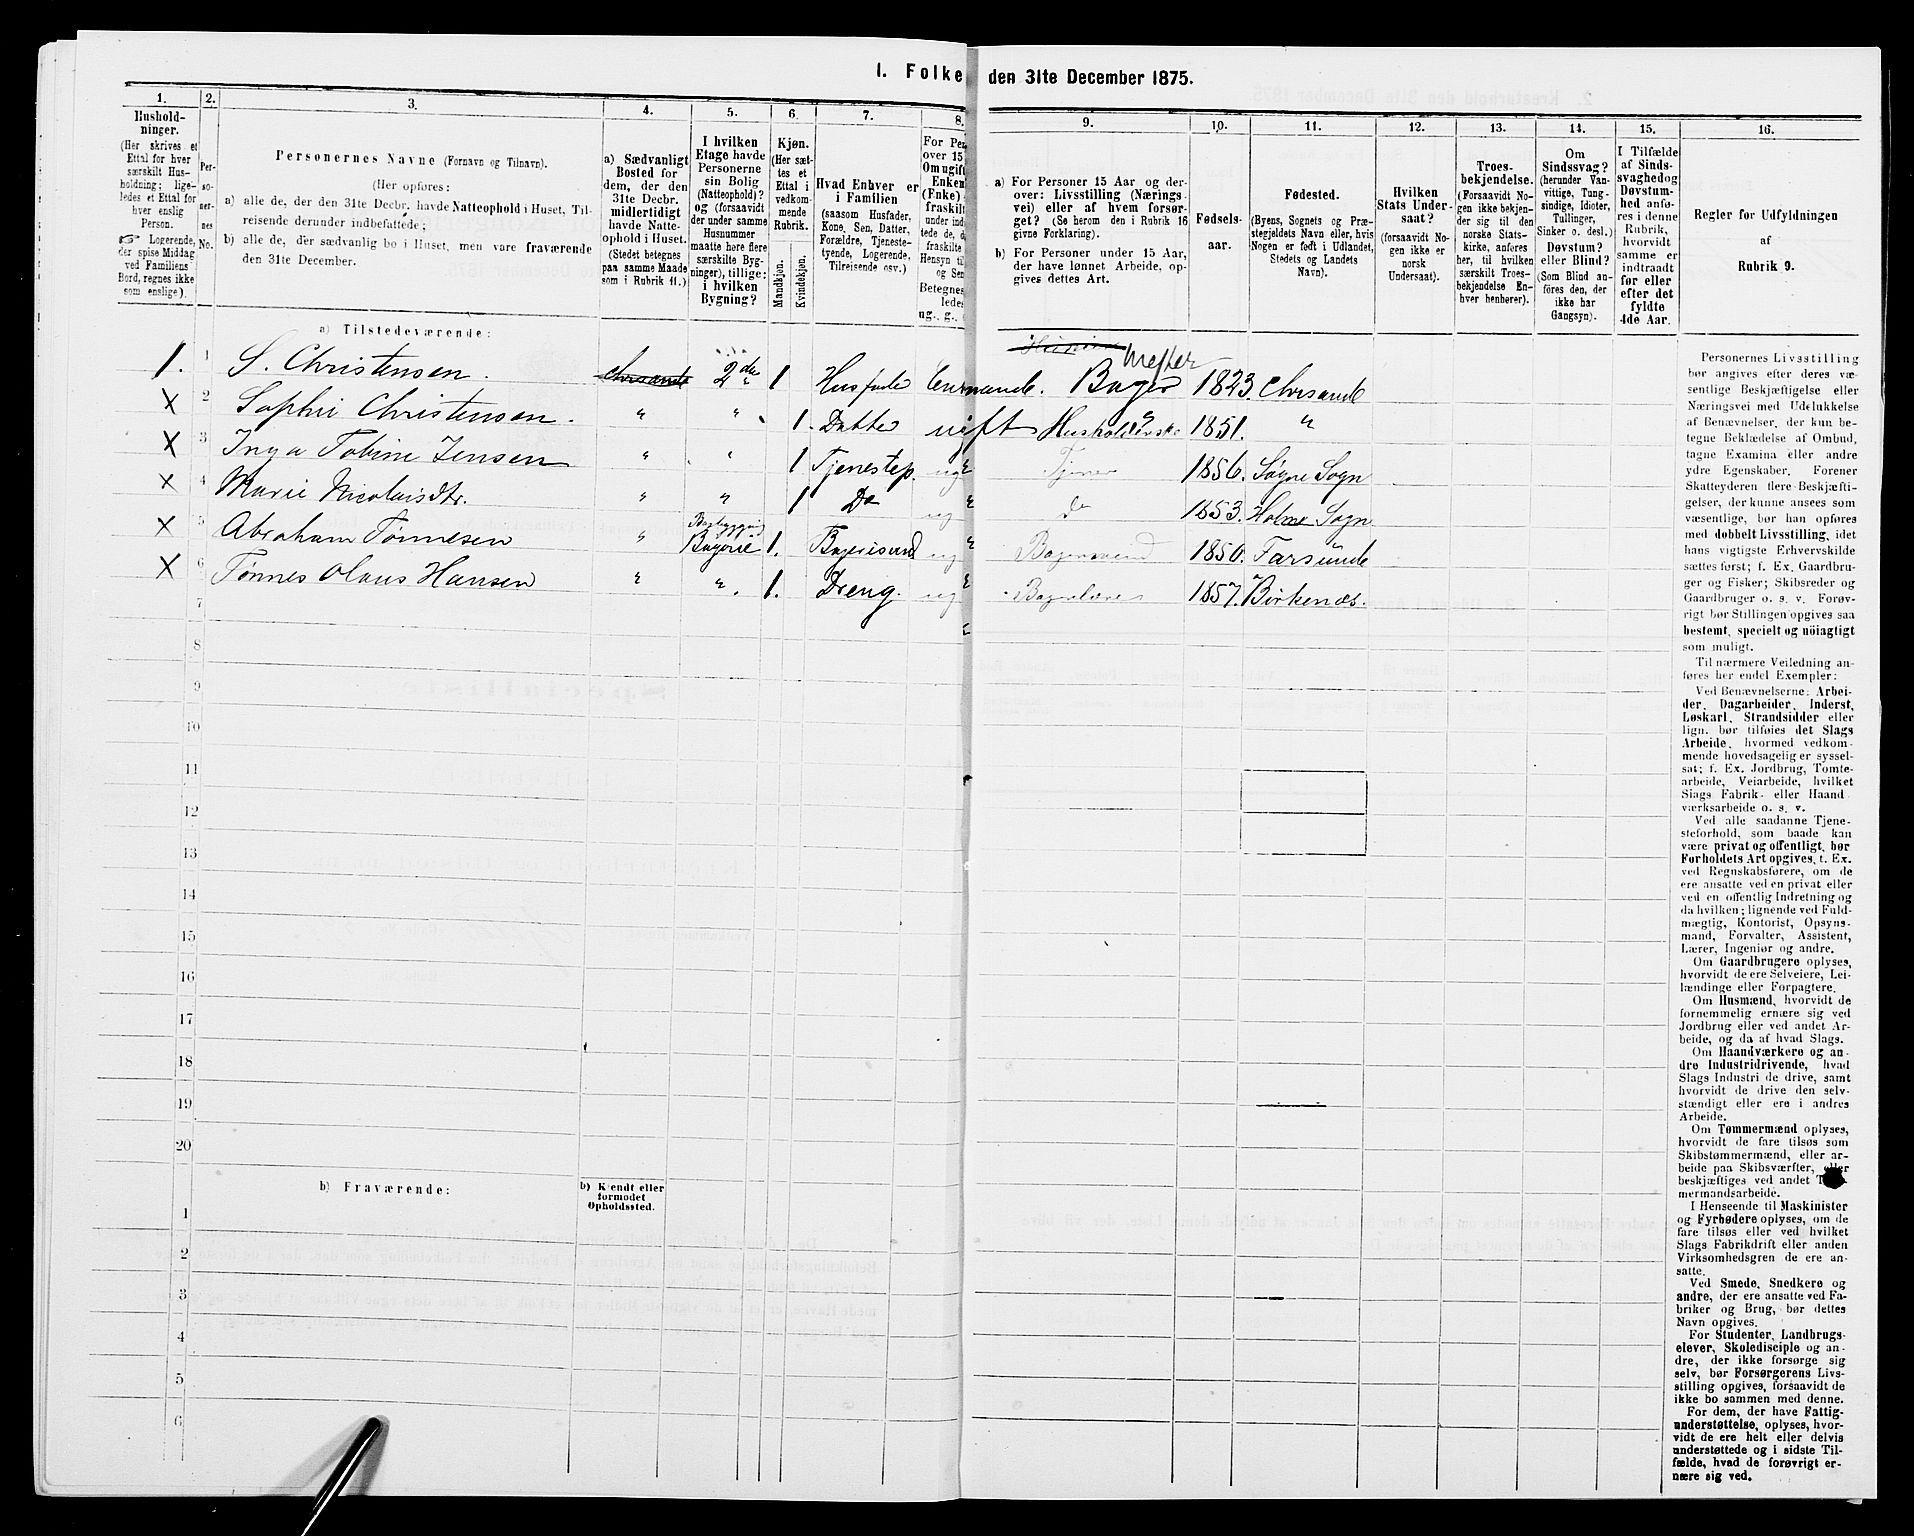 1. Folke den 31te December 1875.
1. 2. 3. 4. 5. 6. 7. 8. 9. 10. 11. 12. 13. 14. 15. 16.
Hushold-
ninger.
(Her skrives et
Ettal for hver
særskilt Hus-
holdning; lige-
ledes et Ettal for
hver enslig
Person.
☞ Logerende,
der spise Middag
ved Familiens
Bord, regnes ikke
som enslige).
Per-
so-
ner-
nes
No.
Personernes Navne (Fornavn og Tilnavn).
(Her opføres:
a) alle de, der den 31te Decbr. havde Natteophold i Huset, Til-
reisende derunder indbefattede;
b) alle de, der sædvanlig bo i Huset, men vare fraværende
den 31te December.
a) Sædvanligt
Bosted for
dem, der den
31te Decbr.
midlertidigt
havde Natte-
ophold i Huset.
(Stedet betegnes
paa samme Maade
som i Rubrik 11.)
I hvilken
Etage havde
Personerne
sin Bolig
(Natteophold)?
og (forsaavidt
der under samme
Husnummer
maatte høre flere
særskilte Byg-
ninger), tillige:
i hvilken
Bygning?
Kjøn.
(Her sæt-
tes et
Ettal i
vedkom-
mende
Rubrik.
Mandkjøn.
Kvindekjøn.
Hvad Enhver er
i Familien
(saasom Husfader,
Kone, Søn, Datter,
Forældre, Tjeneste-
tyende, Logerende,
Tilreisende osv.)
For Pe
over 15
Om ugift
Enken
(Enke)
fraskilt
under ind
tede de, d
fraskilte
Hensyn til
og Sen
Betegnes
ledes
ug., g.,
a) For Personer 15 Aar og der-
over: Livsstilling (Nærings-
vei) eller af hvem forsør-
get? (Se herom den i Rubrik 16
givne Forklaring).
b) For Personer under 15 Aar,
der have lønnet Arbeide, op-
gives dettes Art.
Fødsels-
aar.
Fødested.
(Byens, Sognets og Præ-
stegjeldets Navn eller, hvis
Nogen er født i Udlandet,
Stedets og Landets
Navn).
Hvilken
Stats Under-
saat?
(forsaavidt No-
gen ikke er
norsk
Undersaat).
Troes-
bekjendelse.
(Forsaavidt No-
gen ikke bekjen-
der sig til den
norske Stats-
kirke, anføres
her, til hvilken
særskilt Troes-
bekjendelse En-
hver henhører).
Om
Sindssvag?
(herunder Van-
vittige, Tung-
sindige, Idioter,
Tullinger,
Sinker o. desl.)
Døvstum?
eller Blind?
(Som Blind an-
føres den, der
ikke har
Gangsyn).
I Tilfælde
af Sinds-
svaghed og
Døvstum-
hed anfø-
res i denne
Rubrik,
hvorvidt
samme er
indtraadt
før eller
efter det
fyldte
4de Aar.
Regler for Udfyldningen
af
Rubrik 9.
a) Tilstedeværende:
1. 1 S. Christensen. Chrsande 2den 1 Husfader Enkemand. Bager Mester 1823. Chrsande
X 2 Sophie Christensen. " " 1. Datter ugift Husholderske 1851. "
X 3 Inga Tobine Jensen " " 1 Tjenestep. ug Tjener 1856. Søgne Sogn
X 4 Marie Nicolaisdtr. " " 1 Do ug do 1853. Holme Sogn
X 5 Abraham Tønnesen " Bagbygning Bagerie 1. Bagerisvend ug Bagersvend 1850. Farsunde
X 6 Tønnes Olaus Hansen " " 1. Dreng. ug Bagerlære 1857. Birkenæs.
7
8
9
10
11
12
13
14
15
16
17
18
19
20
b) Fraværende:
b) Kjendt eller
formodet
Opholdssted.
1
2
3
4
5
6
Personernes Livsstilling
bør angives efter deres væ-
sentlige Beskjæftigelse eller
Næringsvei med Udelukkelse
af Benævnelser, der kun be-
tegne Beklædelse af Ombud,
tagne Examina eller andre
ydre Egenskaber. Forener
Skatteyderen flere Beskjæfti-
gelser, der kunne ansees som
væsentlige, bør han opføres
med dobbelt Livsstilling, idet
hans vigtigste Erhvervskilde
sættes først; f. Ex. Gaardbru-
ger og Fisker; Skibsreder og
Gaardbruger o. s. v. Forøv-
rigt bør Stillingen opgives saa
bestemt, specielt og nøiagtigt
som muligt.
Til nærmere Veiledning an-
føres her endel Exempler:
Ved Benævnelserne: Arbei-
der, Dagarbeider, Inderst,
Løskarl, Strandsidder eller
lign. bør tilføies det Slags
Arbeide, hvormed vedkom-
mende hovedsagelig er syssel-
sat; f. Ex. Jordbrug, Tomte-
arbeide, Veiarbeide, hvilket
Slags Fabrik- eller Haand
værksarbeide o. s. v.
Ved alle saadanne Tjene-
steforhold, som baade kan
være privat og offentligt, bør
Forholdets Art opgives, t. Ex.
ved Regnskabsførere, om de
ere ansatte ved en privat eller
ved en offentlig Indretning og
da hvilken; lignende ved Fuld-
mægtig, Kontorist, Opsyns-
mand, Forvalter, Assistent,
Lærer, Ingeniør og andre.
Om Gaardbrugere oplyses,
hvorvidt de ere Selveiere, Lei-
lændinge eller Forpagtere.
Om Husmænd, hvorvidt de
fornemmelig ernære sig ved
Jordbrug eller ved andet Ar-
beide, og da af hvad Slags.
Om Haandværkere og an-
dre Industridrivende, hvad
Slags Industri de drive, samt
hvorvidt de drive den selv-
stændigt eller ere i andres
Arbeide.
Om Tømmermænd oplyses,
hvorvidt de fare tilsøs som
Skibstømmermænd, eller ar-
beide paa Skibsværfter, eller
beskjæftiges ved andet T
mermandsarbeide.
I Henseende til Maskinister
og Fyrbødere oplyses, om de
fare tilsøs eller ved hvilket
Slags Fabrikdrift eller anden
Virksomhedsgren de ere an-
satte.
Ved Smede, Snedkere og
andre, der ere ansatte ved Fa-
briker og Brug, bør dettes
Navn opgives.
For Studenter, Landbrugs-
elever, Skoledisciple og an-
dre, der ikke forsørge sig
selv, bør Forsørgerens Livs-
stilling opgives, forsaavidt de
ikke bo sammen med denne.
For dem, der have Fattig-
understøttelse, oplyses, hvor-
vidt de ere helt eller delvis
understøttede og i sidste Til-
fælde, hvad de forøvrigt er-
nære sig ved.